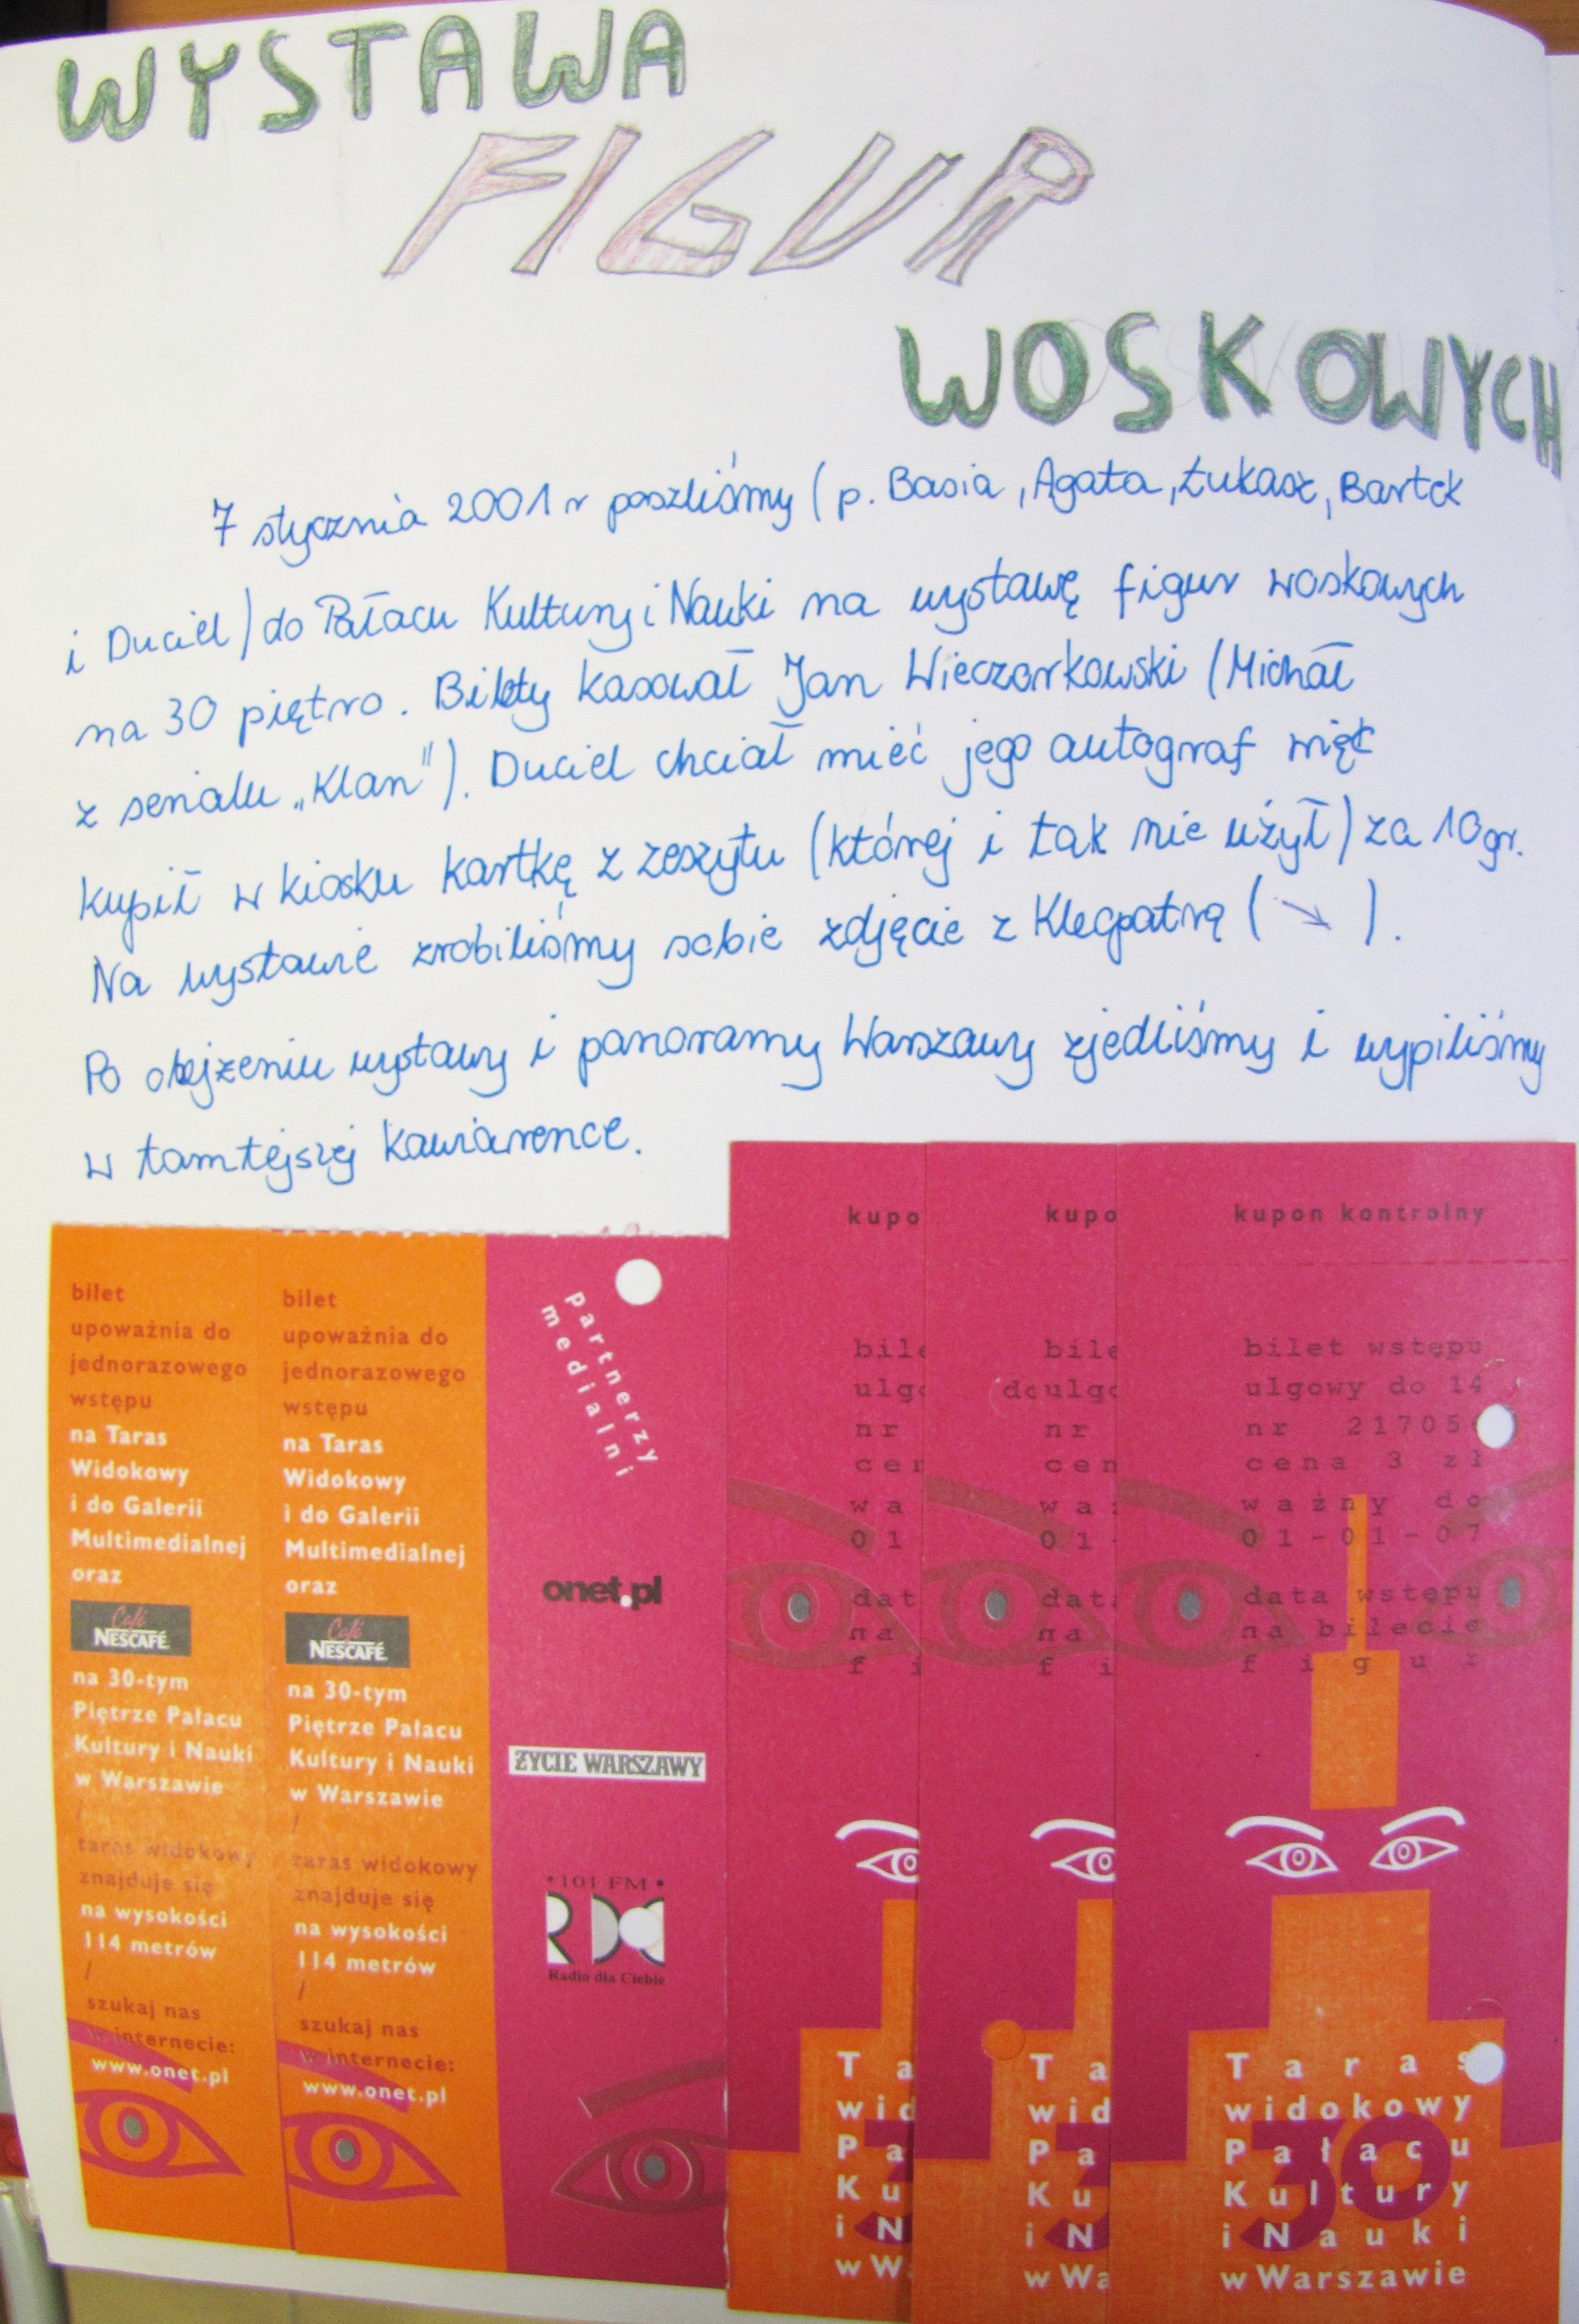 WYSTAWA
FIGUR
WOSKOWYCH
7 stycznia 2001 r poszliśmy ( p. Basia , Agata , Łukasz, Bartek
i Duciel ) do Pałacu Kultury i Nauki na wystawę figur woskowych
na 30 piętro . Bilety kasował Jan Wieczorkowski (Michał
z serialu „Klan"). Duciel chciał mieć jego autograf więc
kupił w kiosku kartkę z zeszytu (której i tak nie użył) za 10 gr.
Na wystawie zrobiliśmy sobie zdjęcie z Kleopatrą ( ↘ ).
Po obejżeniu wystawy i panoramy Warszawy zjedliśmy i wypiliśmy
w tamtejszej kawiarence.
bilet
upoważnia do
jednorazowego
wstępu
na Taras
Widokowy
i do Galerii
Multimedialnej
oraz
Café
NESCAFÉ
na 30-tym
Piętrze Pałacu
Kultury i Nauki
w Warszawie
/
taras widokowy
znajduje się
na wysokości
114 metrów
/
szukaj nas
w internecie:
www.onet.pl
bilet
upoważnia do
jednorazowego
wstępu
na Taras
Widokowy
i do Galerii
Multimedialnej
oraz
Café
NESCAFÉ
na 30-tym
Piętrze Pałacu
Kultury i Nauki
w Warszawie
/
taras widokowy
znajduje się
na wysokości
114 metrów
/
szukaj nas
w internecie:
www.onet.pl
partnerzy
medialni
onet.pl
ŻYCIE WARSZAWY
• 101 FM •
RDC
Radio dla Ciebie
kupo
bile
ulgo
nr
cen
wa
01
dat
na
fi
Ta
wid
Pa
Ku
i N
w Wa
kupo
bile
ulgo
nr
cen
wa
01-
data
na
fi
Ta
wid
Pa
Ku
i N
w Wa
kupon kontrolny
bilet wstępu
ulgowy do 14
nr 21705
cena 3 zł
ważny do
01-01-07
data wstępu
na bilecie
figur
30
Taras
widokowy
Pałacu
Kultury
i Nauki
w Warszawie